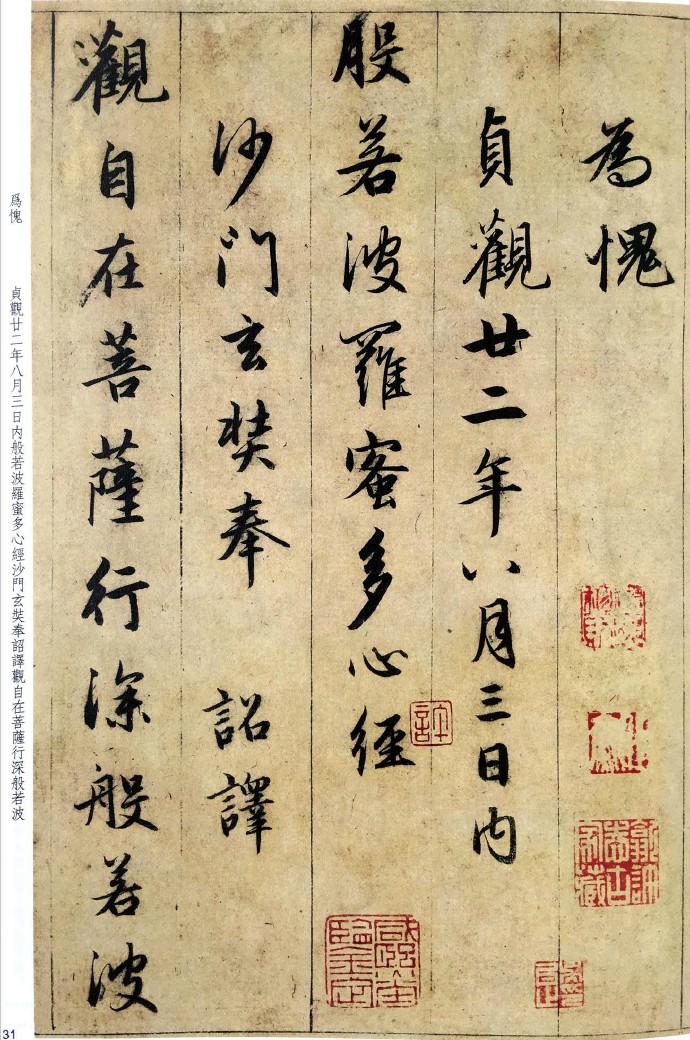 為愧
貞觀廿二年八月三日内
般若波羅蜜多心經
沙門玄奘奉 詔譯
觀自在菩薩行深般若波
爲愧 貞觀廿二年八月三日内般若波羅蜜多心經沙門玄奘奉詔譯觀自在菩薩行深般若波
31